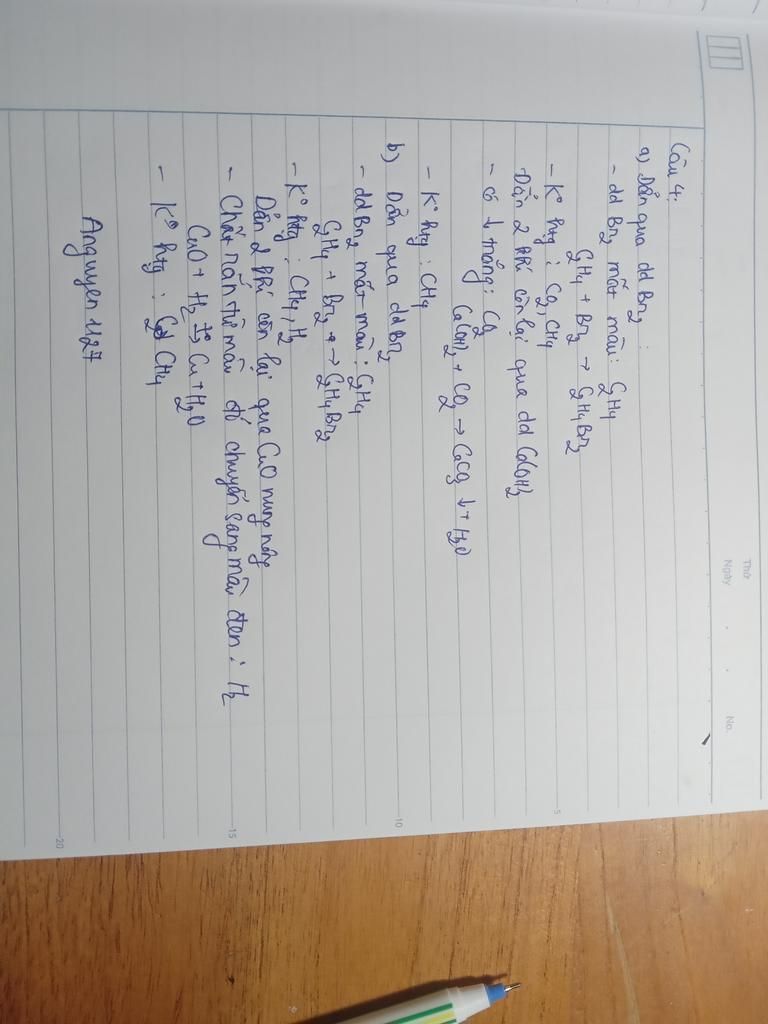 Thứ
Ngày
No.
Câu 4:
a) Dẫn qua dd Br2:
- dd Br2 mất màu: C2H4
C2H4 + Br2 → C2H4Br2
- K° htg: CO2, CH4
Dẫn 2 khí còn lại qua dd Ca(OH)2
- có ↓ trắng: CO2
Ca(OH)2 + CO2 → CaCO3 ↓ + H2O
- K° htg: CH4
b) Dẫn qua dd Br2
- dd Br2 mất màu: C2H4
C2H4 + Br2 → C2H4Br2
- K° htg: CH4, H2
Dẫn 2 khí còn lại qua CuO nung nóng
- Chất rắn từ màu đỏ chuyển sang màu đen: H2
CuO + H2 t°→ Cu + H2O
- K° htg: CH4
Anguyen1127
5
10
15
20